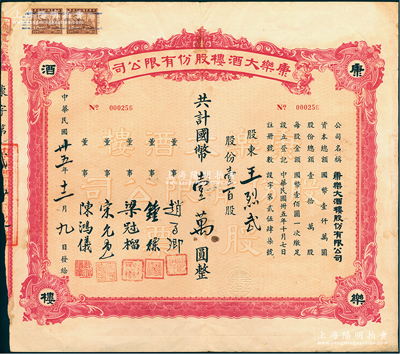 康樂大酒樓股份有限公司
康
樂
酒
樓
No 000256
No 000256
公司名稱 康樂大酒樓股份有限公司
資本總額 國幣壹仟萬圓
股份總額 壹拾萬股
每股金額 國幣壹佰圓一次繳足
設立登記 中華民國卅五年十月七日
註冊號數 設字第貳伍肆柒號
股東 王烈武
股份 壹百股
共計國幣 壹萬 圓整
董事
董事 梁冠榴
董事
董事 陳鴻儀
中華民國 卅五 年 十二 月 九 日發給